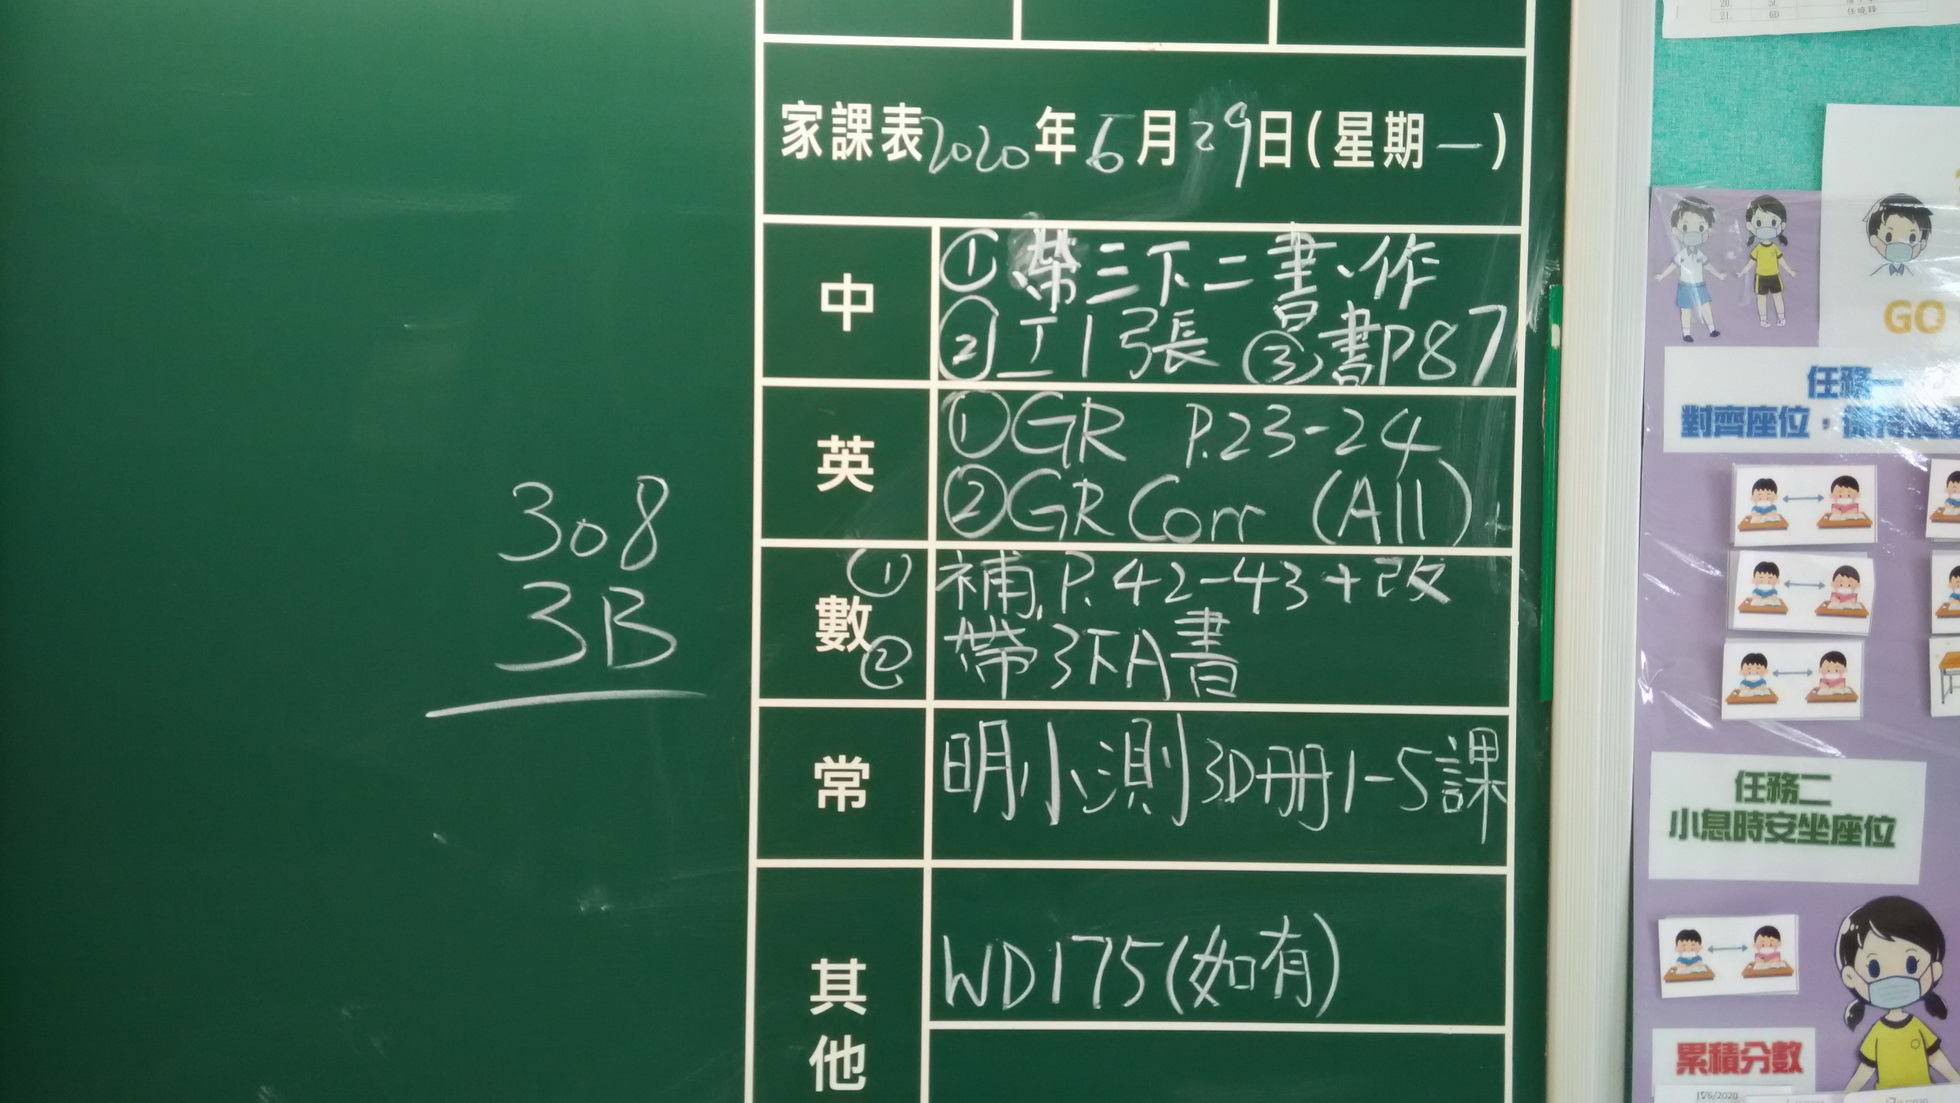 308
3B
家課表2020年6月29日(星期一)
中
①帶三下二書、作
②工1張 ③書P87
英
①GR P.23-24
②GR Corr (All)
數
①補.P.42-43+改
②帶3下A書
常
明小測3D冊1-5課
其他
WD175(如有)
21. 6D
GO
任務一
對齊座位,
任務二
小息時安坐座位
累積分數